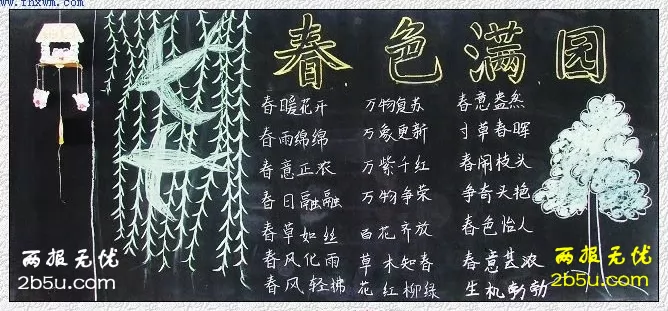 www.fnxwm.com
春色满园
春暖花开 万物复苏 春意盎然
春雨绵绵 万象更新 寸草春晖
春意正浓 万紫千红 春闹枝头
春日融融 万物争荣 争奇头艳
春草如丝 百花齐放 春色怡人
春风化雨 草木知春 春意甚浓
春风轻拂 花红柳绿 生机勃勃
两报无忧
2b5u.com
两报无忧
2b5u.com